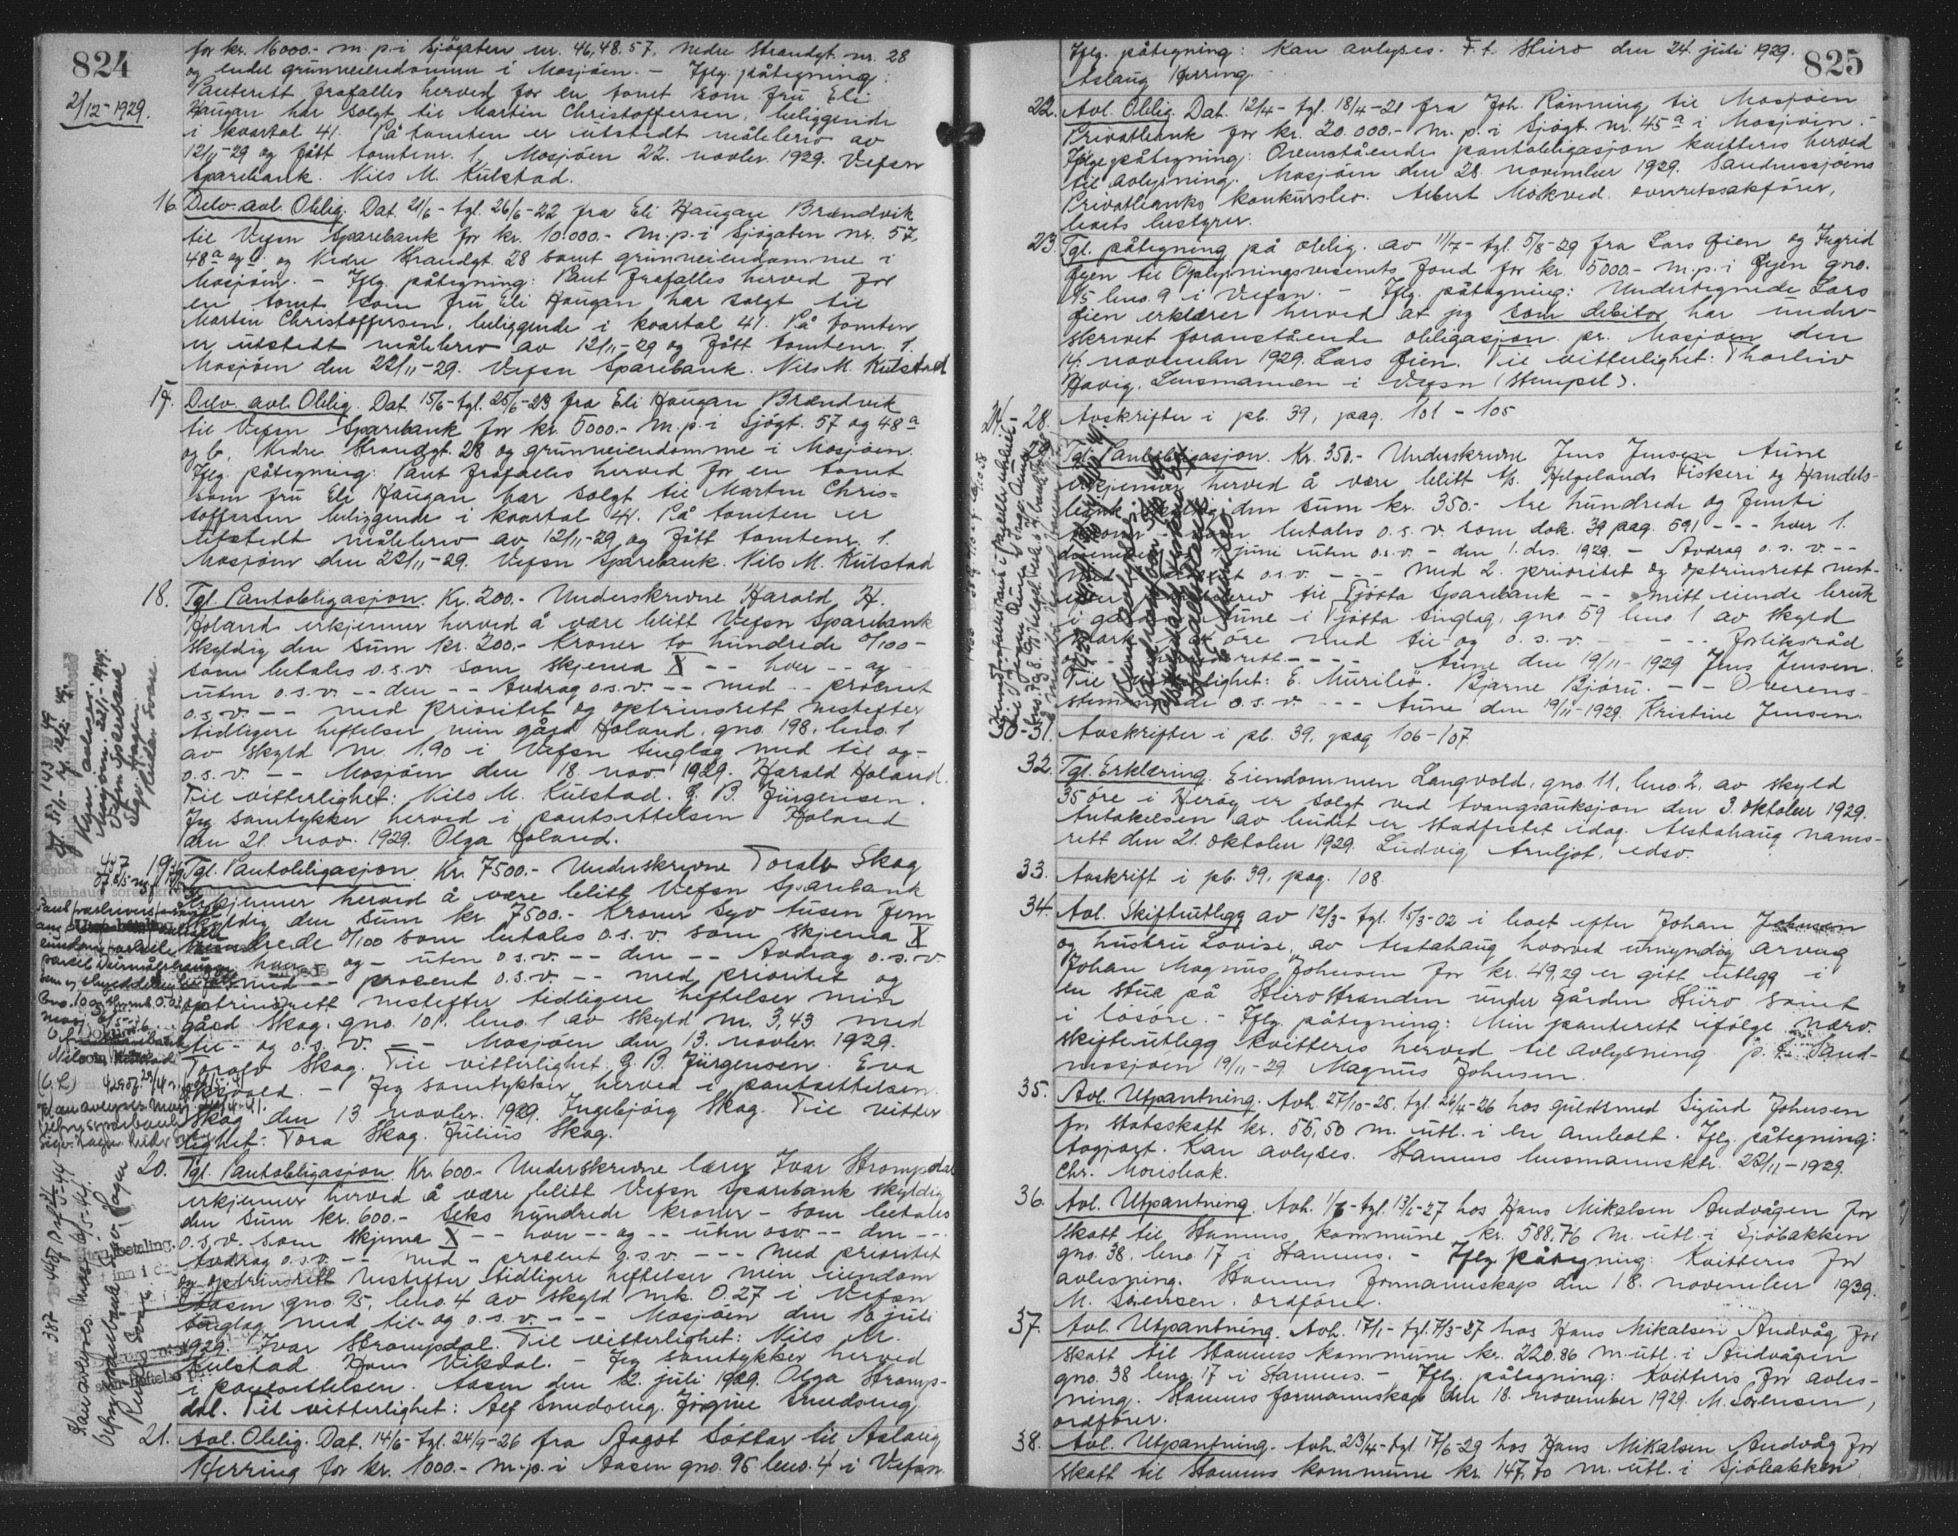 824
2/12-1929.
for kr. 16000.- m.p. i Sjøgaten nr. 46, 48. 57. Nedre Strandgt. nr. 28
og endel grunneiendommer i Mosjøen. - Iflg. påtegning:
Panterett frafalles herved for en tomt som fru Eli
Haugan har solgt til Martin Christoffersen, beliggende
i kvartal 41. På tomten er utstedt målebrev av
12/11-29 og fått tomtenr. 1. Mosjøen 22. novbr. 1929. Vefsn
Sparebank. Nils M. Kulstad.
16. Delv. avl. Oblig. Dat. 21/6- tgl. 26/6-22 fra Eli Haugan Brændvik
til Vefsn Sparebank for kr. 10.000.- m.p. i Sjøgaten nr. 57,
48a og b. og Nedre Strandgt. 28 samt grunneiendomme i
Mosjøen. - Iflg. påtegning: Pant frafalles herved for
en tomt som fru Eli Haugan har solgt til
Martin Christoffersen, beliggende i kvartal 41. På tomten
er utstedt målebrev av 12/11-29 og fått tomtenr. 1.
Mosjøen den 22/11-29. Vefsn Sparebank. Nils M. Kulstad
17. Delv. avl. Oblig. Dat. 15/6- tgl. 25/6-23 fra Eli Haugan Brændvik
til Vefsn Sparebank for kr. 5000.- m.p. i Sjøgt. 57 og 48a
og b, Nedre Strandgt. 28 og grunneiendomme i Mosjøen.
Iflg. påtegning: Pant frafalles herved for en tomt
som fru Eli Haugan har solgt til Martin Chris=
toffersen beliggende i kvartal 41. På tomten er
utstedt målebrev av 12/11-29 og fått tomtenr. 1.
Mosjøen den 22/11-29. Vefsn Sparebank. Nils M. Kulstad
18. Tgl. Pantobligasjon. Kr. 200.- Underskrevne Harald H.
Holand erkjenner herved å være blitt Vefsn Sparebank
skyldig den sum kr. 200.- Kroner to hundrede 0/100 -
som betales o.s.v. som skjema X -- hver -- og
uten o.s.v. -- den -- Avdrag o.s.v. -- med -- procent
o.s.v. -- med prioritet og optrinsrett nestefter
tidligere heftelser min gård Holand, gno. 198, bno. 1
av skyld m. 1.90 i Vefsn tinglag med til og -
o.s.v. -- Mosjøen den 18. nov. 1929. Harald Holand.
Til vitterlighet: Nils M. Kulstad. G. B. Jürgensen.
Jeg samtykker herved i pantsettelsen Holand
den 21. nov. 1929. Olga Holand.
19. Tgl. Pantobligasjon. Kr. 7500.- Underskrevne Toralv Skog
erkjenner herved å være blitt Vefsn Sparebank
skyldig den sum kr. 7500.- Kroner Syv tusen fem
hundrede 0/100 som betales o.s.v. som skjema X
hver - og - uten o.s.v. -- den -- Avdrag o.s.v.
med -- procent o.s.v. -- med prioritet og
optrinsrett nestefter tidligere heftelser min
gård Skog, gno. 101. bno. 1 av skyld m. 3,43 med
til - og o.s.v. -- Mosjøen den 13. novbr. 1929.
Toralv Skog. Til vitterlighet G. B. Jürgensen. Eva
- Jeg samtykker herved i pantsettelsen.
Skog den 13 novbr. 1929. Ingebjørg Skog. Til vitter
lighet: Tora Skog. Julius Skog.
20. Tgl. Pantobligasjon. Kr. 600.- Underskrevne lærer Ivar Strompdal
erkjenner herved å være blitt Vefsn Sparebank skyldig
den sum kr. 600.- Seks hundrede kroner - som betales
o.s.v. som skjema X -- hver -- og -- uten osv -- den --
Avdrag o.s.v. -- med - procent o.s.v. --- med prioritet
og optrinsrett nestefter tidligere heftelser min eiendom
Aasen gno. 95, bno. 4 av skyld mk. 0.27 i Vefsn
tinglag med til- og o.s.v. --- Mosjøen den 10 juli
1929. Ivar Strompdal. Til vitterlighet: Nils M.
Kulstad. Hans Vikdal. - Jeg samtykker herved
i pantsettelsen. Aasen den 12. juli 1929. Olga Stromp-
dal. Til vitterlighet: Alf Smedseng. Jørgine Smedseng
21. Avl. Oblig. Dat. 14/6- tgl. 24/9-26 fra Aagot Søttar til Aslaug
Herring for kr. 1000.- m.p. i Aasen gno. 95 bno. 4 i Vefsn
825
Iflg. påtegning: Kan avlyses. F.t. Stiro den 24. juli 1929.
Aslaug Herring.
22. Avl. Oblig. Dat. 12/4- tgl. 18/4-21 fra Joh. Rønning til Mosjøen
Privatbank for kr. 20.000.- m.p. i Sjøgt. nr. 45a i Mosjøen. -
Iflg. påtegning: Ovenstående pantobligasjon kvitteres herved
til avlysning. Mosjøen den 28. november 1929. Sandnessjøens
Privatbanks konkursbo. Albert Moskved. overrettssakfører,
boets bestyrer.
23. Tgl. påtegning på oblig. av 11/7- tgl. 5/8-29 fra Lars Øien og Ingrid
Øyen til Oplysningsvesenets fond for kr. 5000.- m.p. i Øyen gno.
95 bno. 9 i Vefsn. - Iflg. påtegning: Undertegnede Lars
Øien erklærer herved at jeg som debitor har under-
skrevet foranstående obligasjon. pr. Mosjøen den
14. november 1929. Lars Øien. Til vitterlighet: Thorleiv
Havig. Lensmannen i Vefsn (stempel).
24 - 28. Avskrifter i pb. 39, pag. 101 - 105
Tgl. Pantobligasjon. Kr. 350.- Underskrevne Jens Jensen Aune
erkjenner herved å være blitt A/s. Helgelands Fiskeri og Handels-
bank skyldig den sum kr. 350.- tre hundrede og femti
kroner som betales o.s.v. som dok. 39 pag. 591 --- hver 1.
juni uten o.s.v. - den 1. des. 1929. - Avdrag o.s.v. --
med o.s.v. --- med 2. prioritet og optrinsrett nest-
til Tjøtta Sparebank -- mitt eiende bruk
i gården Aune i Tjøtta tinglag, gno 59 bno. 1 av skyld
mark øre med til og o.s.v. - -- Forliksråd
--- Aune den 19/11-1929 Jens Jensen.
Til vitterlighet: E. Murileø. Bjarne Bjøru. - - Overens-
stemmende o.s.v. --- Aune den 19/11-1929. Kristine Jensen.
30-31. Avskrifter i pb. 39. pag 106-107.
32. Tgl. Erklæring. Eiendommen Langvold, gno. 11, bno. 2. av skyld
35 øre i Herøy er solgt ved tvangsauksjon den 3. oktober 1929.
Antakelsen av budet er stadfestet idag. Alstahaug nams-
rett den 21. oktober 1929. Ludvig Arnljot, edsv.
33. Avskrift i pb. 39, pag. 108.
34. Avl. Skifteutlegg av 12/3- tgl. 15/3-02 i boet efter Johan Johnsen
og hustru Lovise, av Alstahaug hvorved umyndig arving
Johan Magnus Johnsen for kr. 49,29 er gitt utlegg i
en stue på Stiro stranden under gården Stiro samt
i løsøre. - Iflg. påtegning: Min panterett ifølge nærv.
skifteutlegg kvitteres herved til avlysning. p.t. Sand-
nessjøen 19/11-29 Magnus Johnsen.
35. Avl. Utpantning. Avh. 27/10-25. tgl. 26/4-26 hos guldsmed Sigurd Johnsen
for statsskatt kr. 55,50 m. utl. i en ambolt. Iflg. påtegning:
Avgjort. Kan avlyses. Stamnes lensmannsktr. 22/11-1929.
Chr. Horsbak.
36. Avl. Utpantning. Avh. 1/6- tgl. 13/6-27 hos Hans Mikalsen Andvågen for
skatt til Stamnes kommune kr. 588.76 m. utl. i Sjøbakken
gno. 38. bno 17 i Stamnes. - Iflg. påtegning: Kvitteres for
avlesning. Stamnes formannskap den 18. november 1939.
M. Sørensen. ordfører.
37. Avl. Utpantning. Avh. 17/1- tgl. 7/3-27 hos Hans Mikalsen Andvåg for
skatt til Stamnes kommune kr. 220.86 m. utl. i Andvågen
gno. 38 bno. 17 i Stamnes. - Iflg. påtegning: Kvitteres for avles-
ning. Stamnes formannskap den 18. november 1929. M. Sørensen,
ordfører.
38. Avl. Utpantning. Avh. 23/4- tgl. 17/6-29 hos Hans Mikalsen Andvåg for
skatt til Stamnes kommune kr. 147,70 m. utl. i Sjøbakken